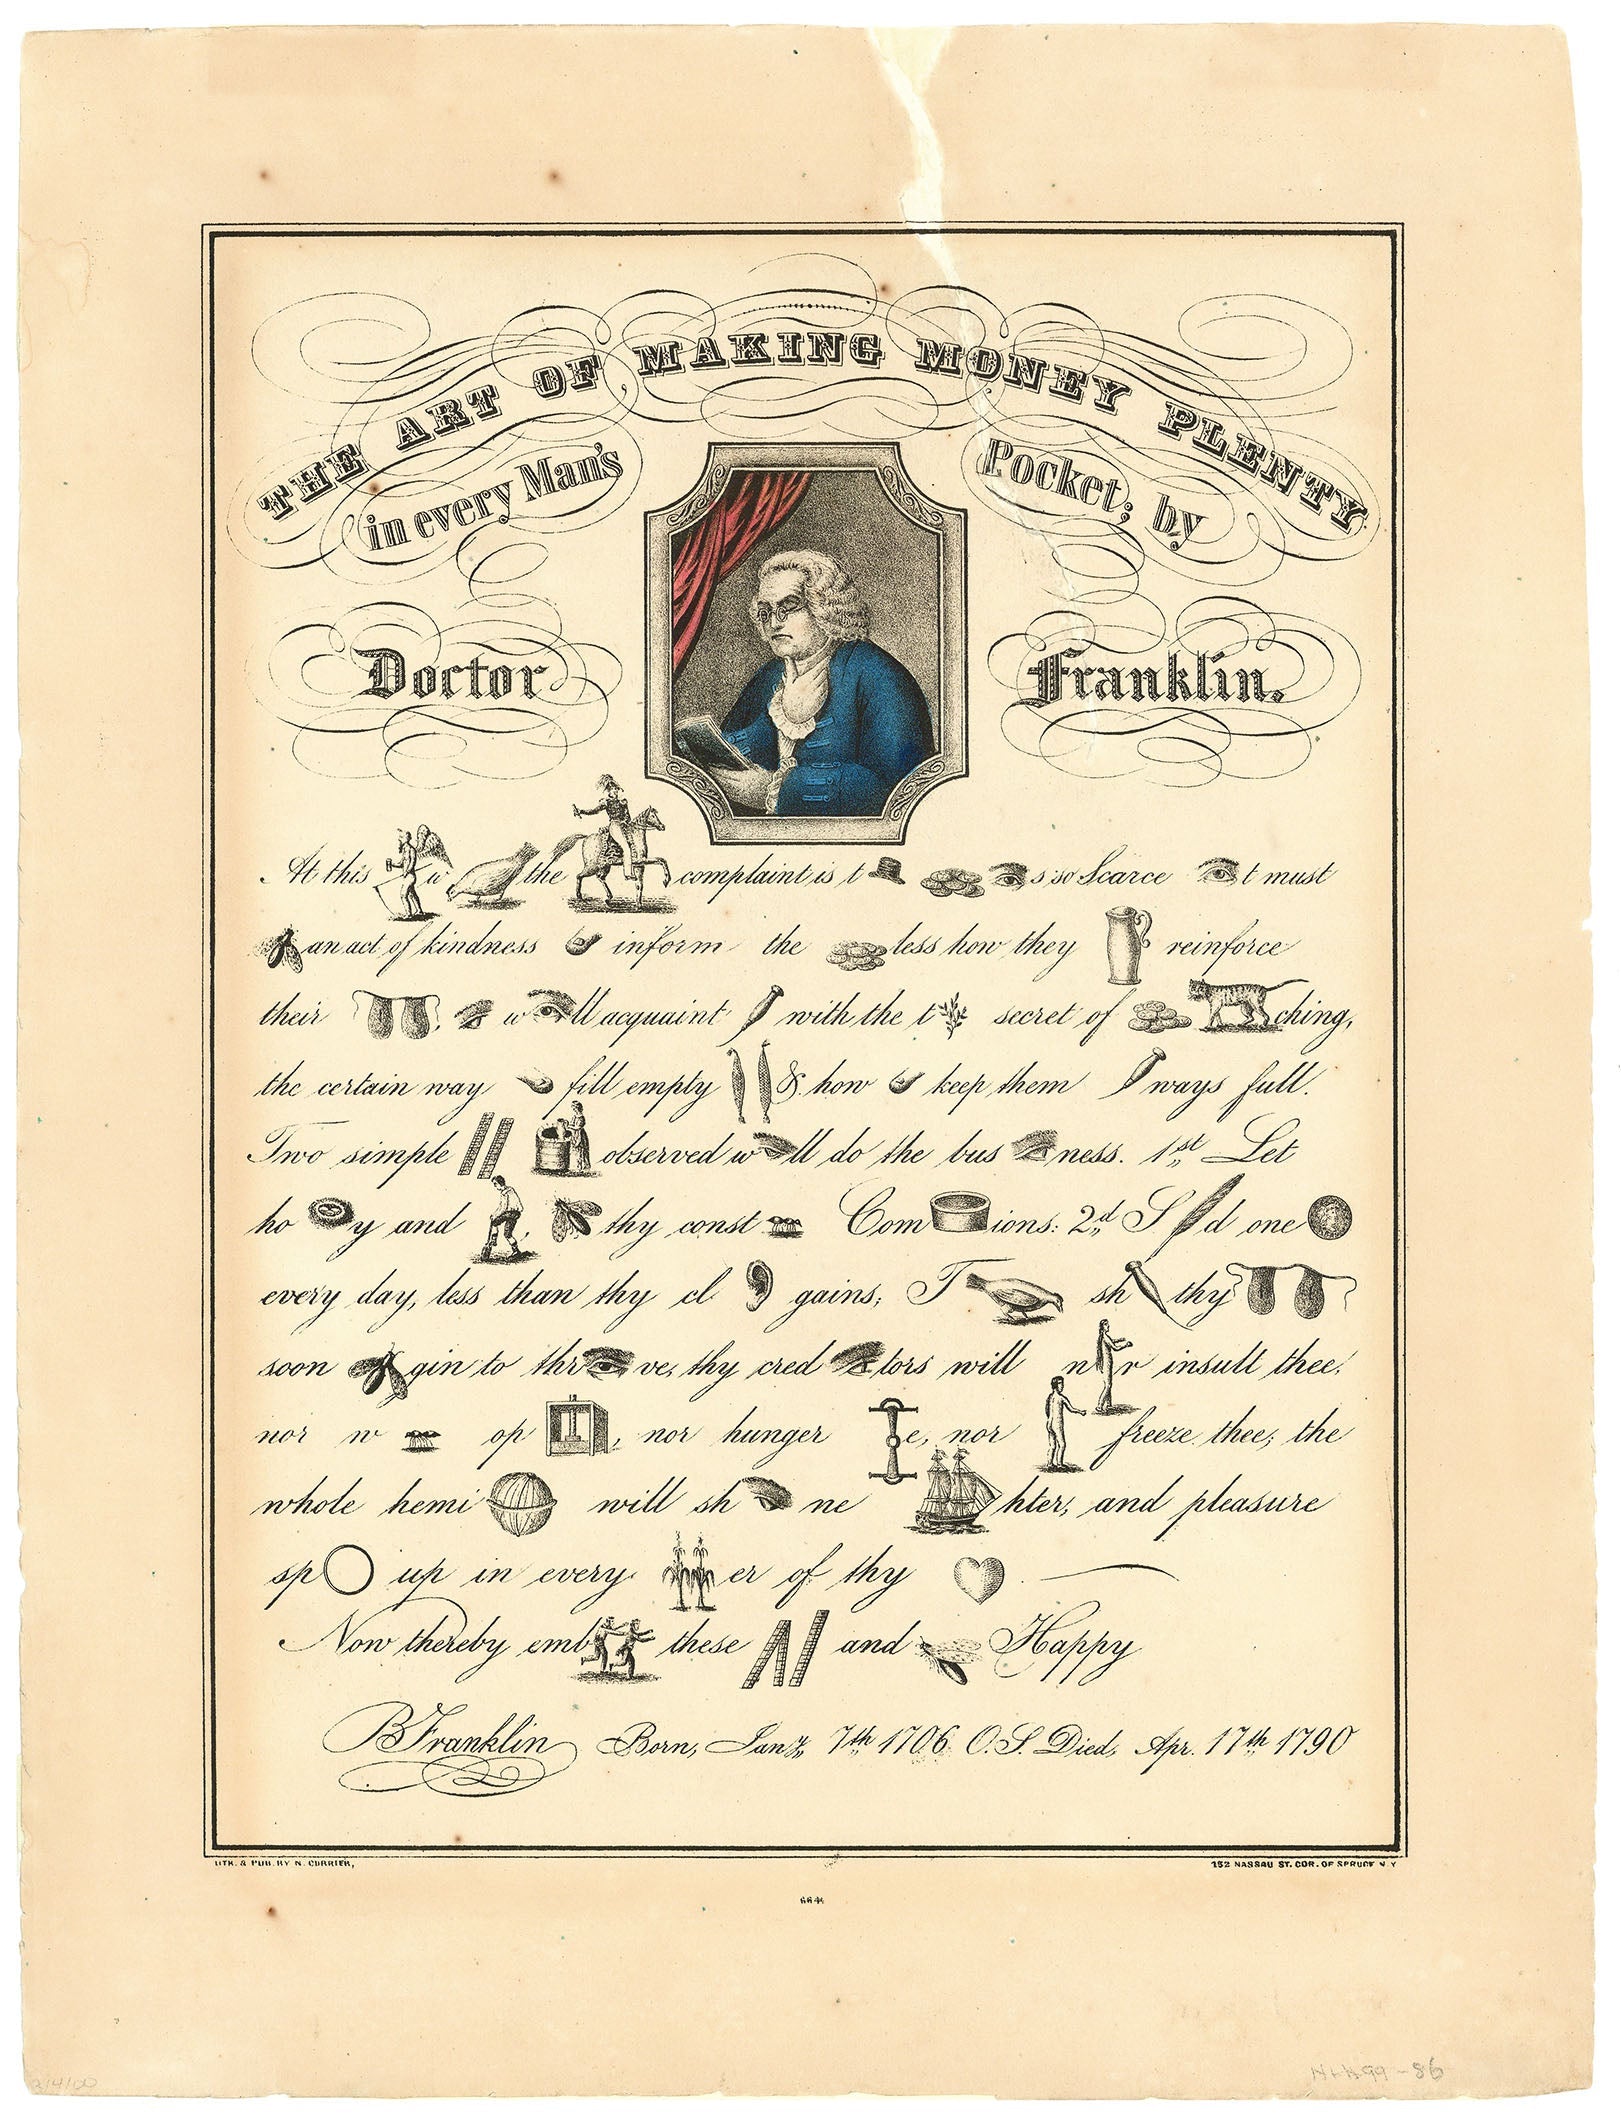 THE ART OF MAKING MONEY PLENTY
in every Man's Pocket; by
Doctor Franklin.
At this w the complaint is t s so Scarce t must
an act of kindness inform the less how they reinforce
their , w ll acquaint with the t secret of ching,
the certain way fill empty & how keep them ways full.
Two simple observed w ll do the bus ness. 1st Let
ho y and , thy const Com ions: 2d S d one
every day, less than thy cl gains; T sh thy
soon gin to thr ve, thy cred tors will n r insult thee,
nor w op , nor hunger e, nor freeze thee; the
whole hemi will sh ne hter, and pleasure
sp up in every er of thy
Now thereby emb these and Happy
BFranklin Born, Jany 7th 1706 O.S. Died, Apr. 17th 1790
LITH. & PUB. BY N. CURRIER, 152 NASSAU ST. COR. OF SPRUCE N.Y